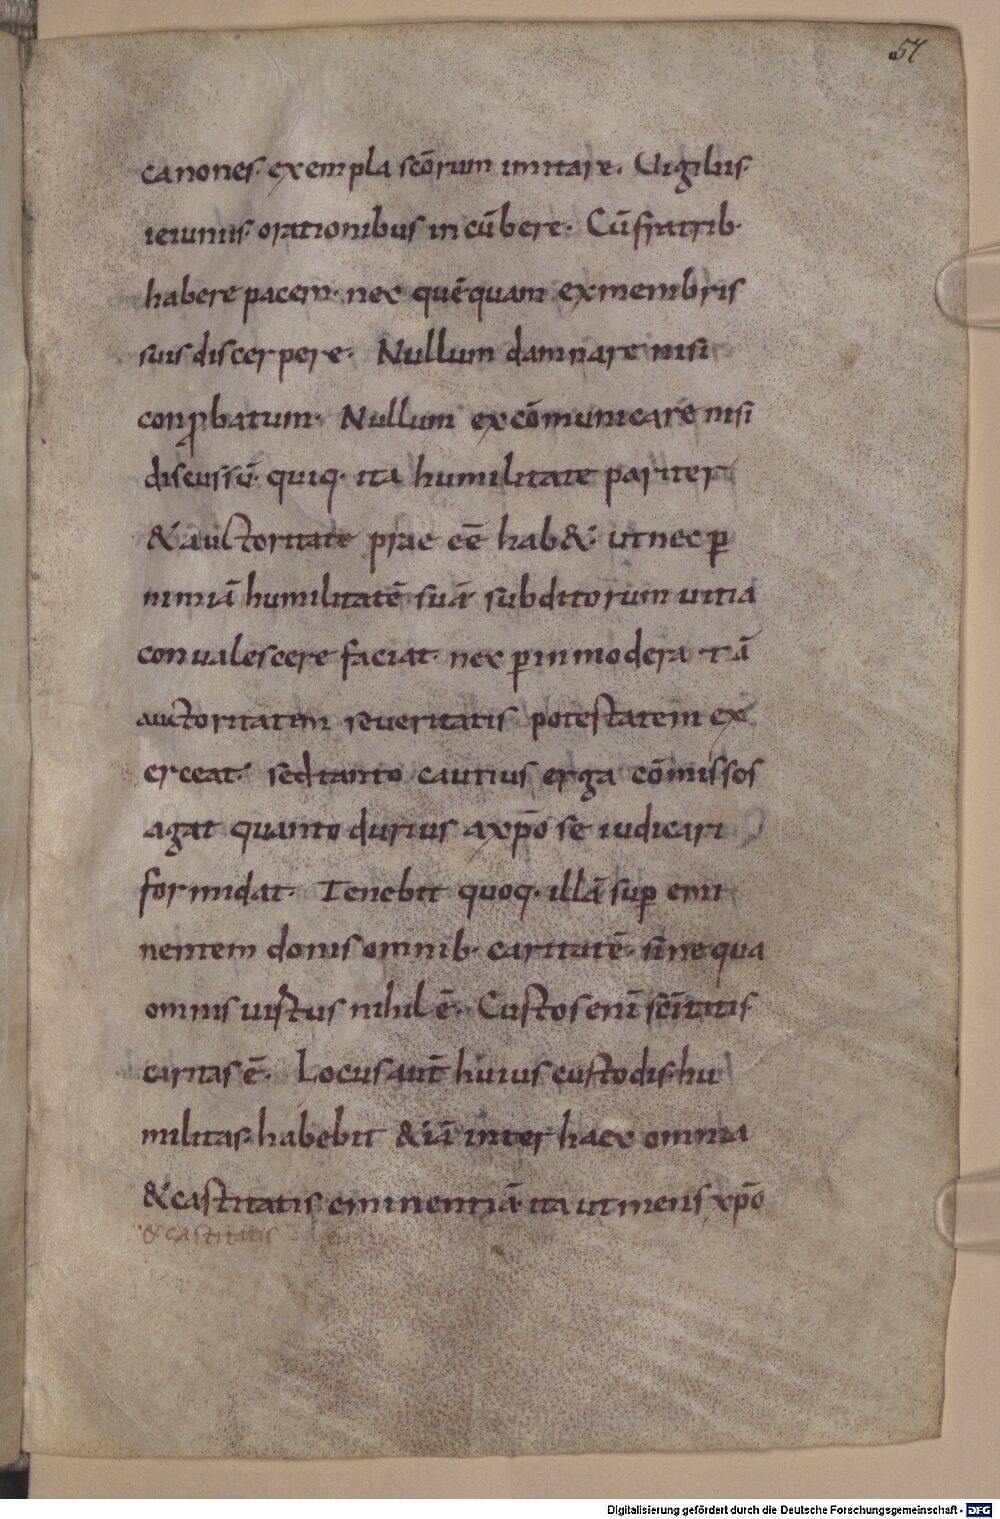 57
canones· exempla scōrum imitare. Uigiliis·
ieiuniis· orationibus incūbere· Cū fratrib·
habere pacem· nec quēquam ex membris
suis discerpere· Nullum damnare nisi
conꝓbatum· Nullum excōmunicare nisi
discussū· quiq· ita humilitate pariter
& auctoritate prae eē hab&· ut nec ꝑ
nimiā humilitatē suā subditorum uitia
conualescere faciat· nec ꝑ inmoderatā
auctoritatem seueritatis potestatem ex
erceat· sed tanto cautius erga cōmissos
agat quanto durius a xp̄o se iudicari
formidat· Tenebit quoq· illā suꝑ emi
nentem donis omnib· caritatē· sine qua
omnis uirtus nihil ē· Custos enī scītatis
caritas ē· Locus aut̄ huius custodis hu
militas· habebit &iā inter haec omnia
& castitatis eminentiā ita ut mens xp̄o
& castitatis
Digitalisierung gefördert durch die Deutsche Forschungsgemeinschaft - DFG